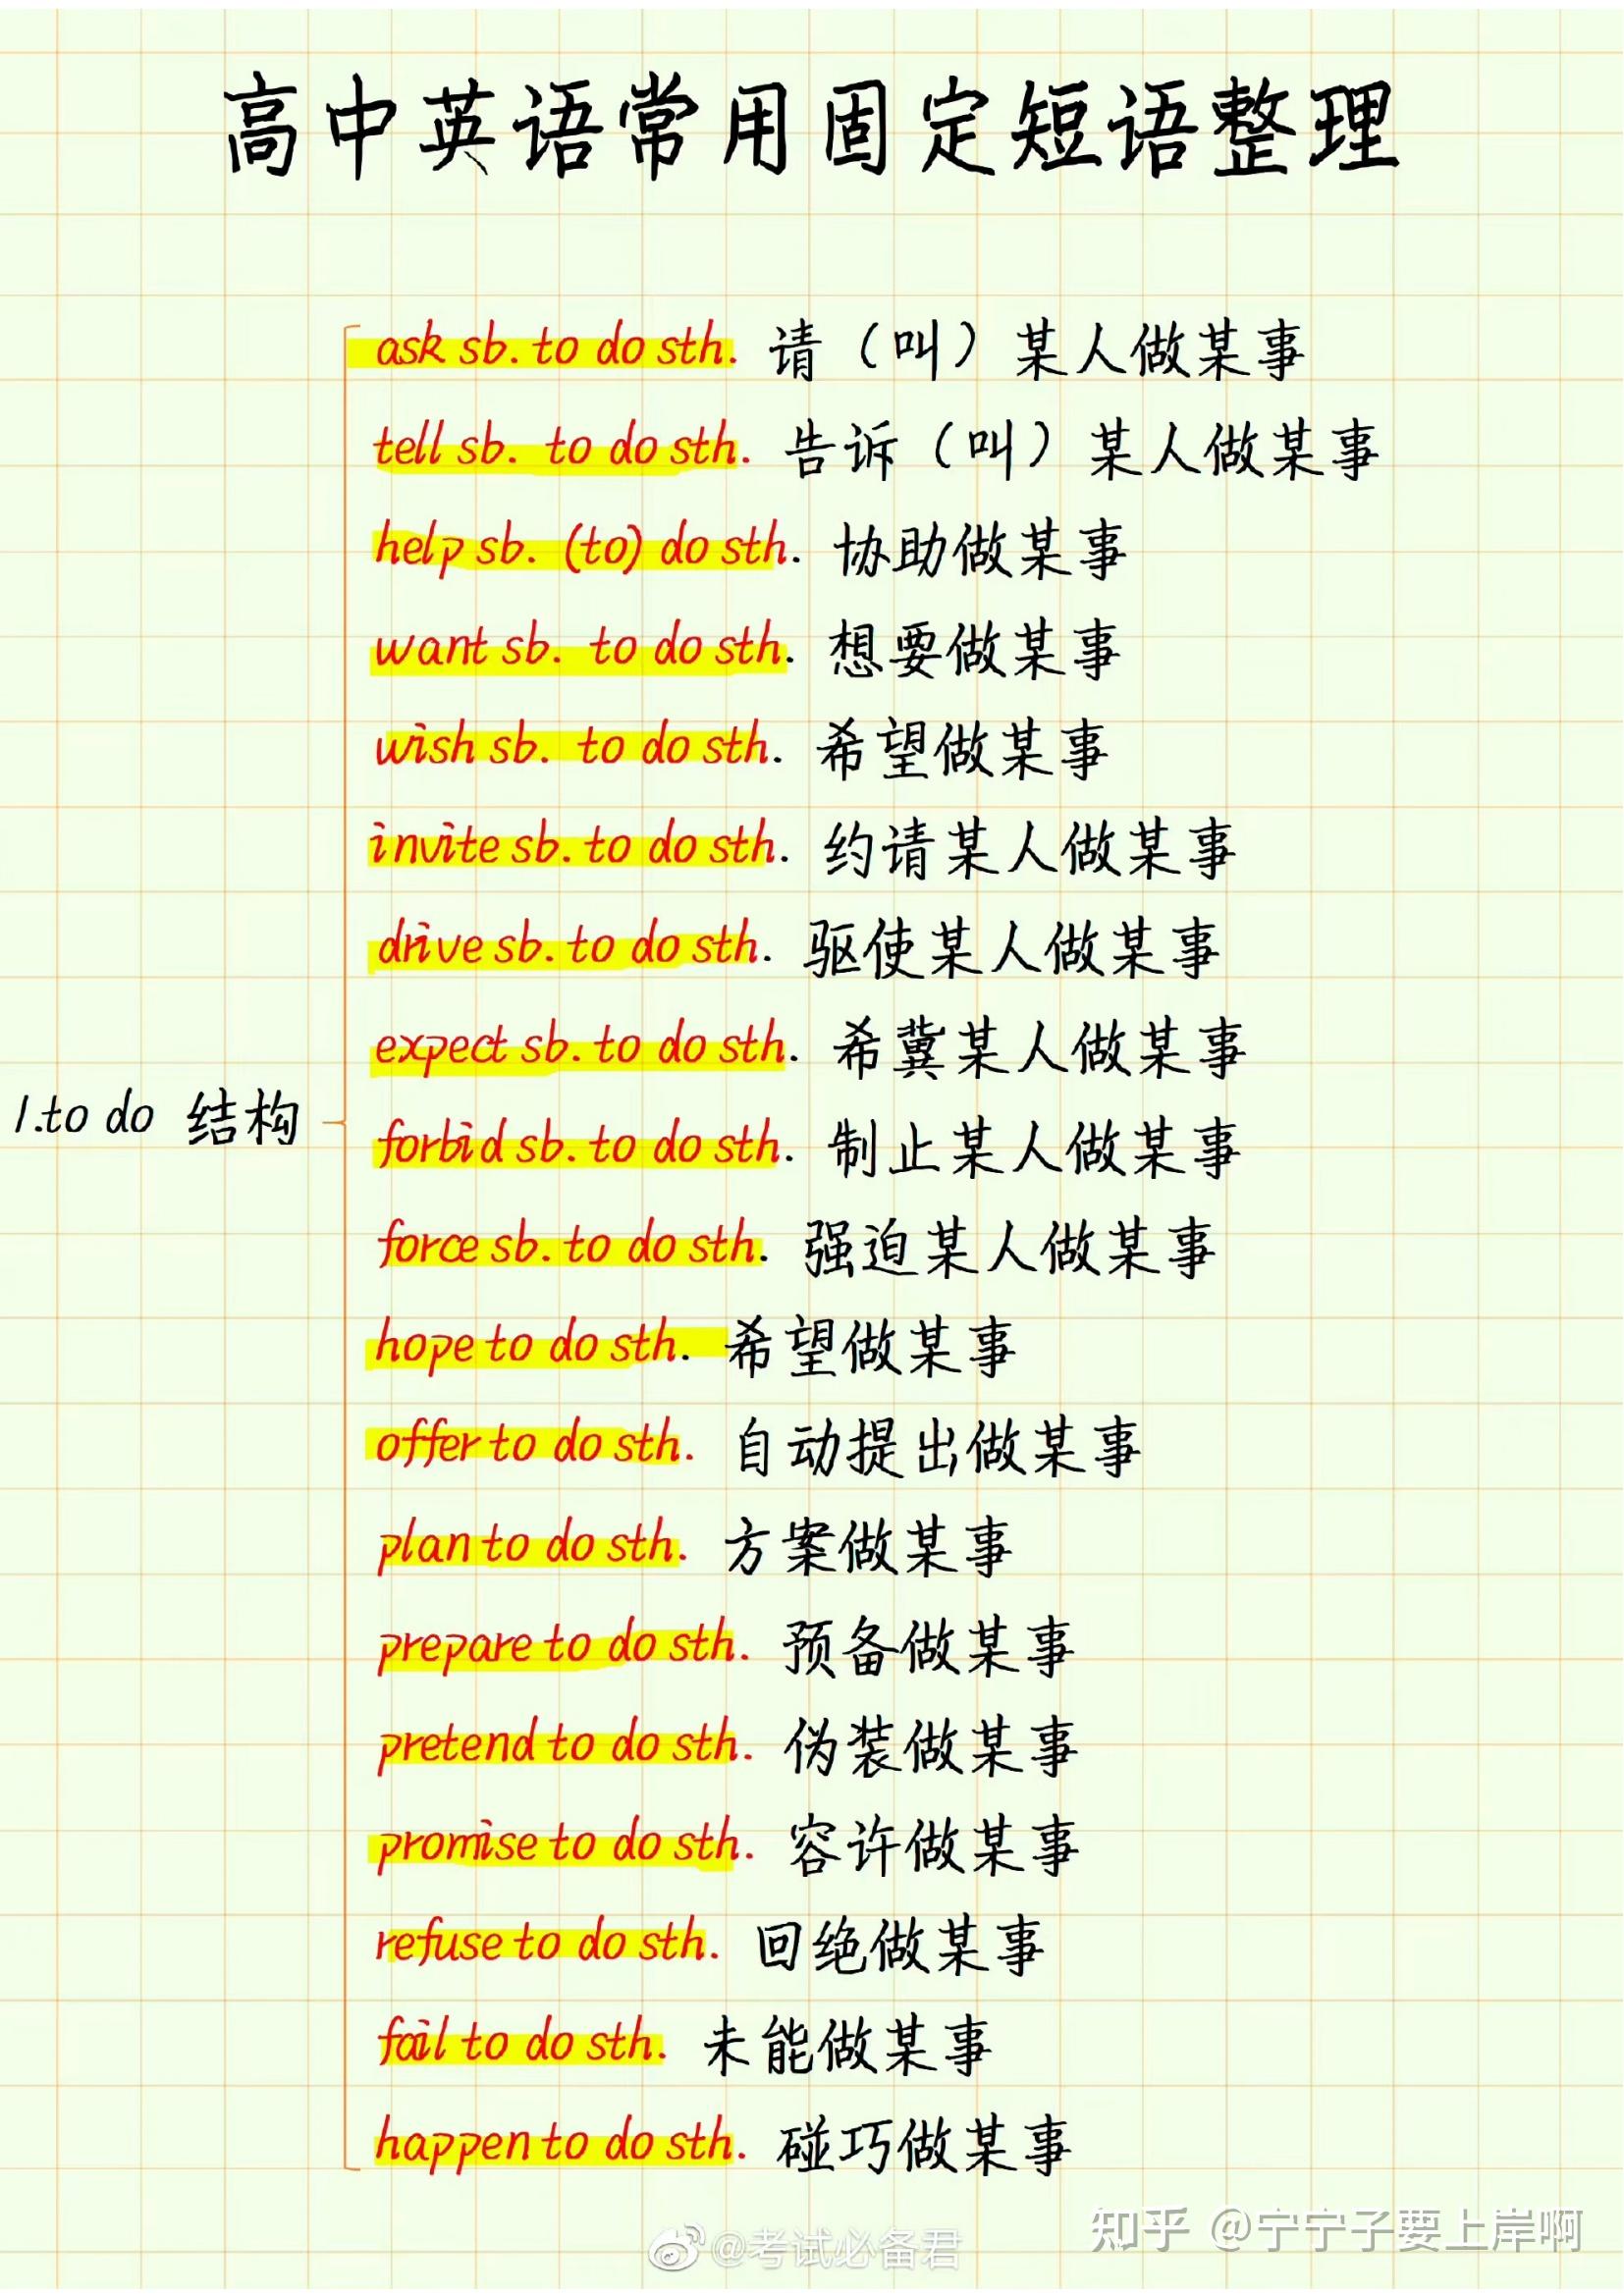 高中英语常用固定短语整理
ask sb. to do sth. 请（叫）某人做某事
tell sb. to do sth. 告诉（叫）某人做某事
help sb. (to) do sth. 协助做某事
want sb. to do sth. 想要做某事
wish sb. to do sth. 希望做某事
invite sb. to do sth. 约请某人做某事
drive sb. to do sth. 驱使某人做某事
expect sb. to do sth. 希冀某人做某事
1.to do 结构
forbid sb. to do sth. 制止某人做某事
force sb. to do sth. 强迫某人做某事
hope to do sth. 希望做某事
offer to do sth. 自动提出做某事
plan to do sth. 方案做某事
prepare to do sth. 预备做某事
pretend to do sth. 伪装做某事
promise to do sth. 容许做某事
refuse to do sth. 回绝做某事
fail to do sth. 未能做某事
happen to do sth. 碰巧做某事
@考试必备君
知乎 @宁宁子要上岸啊